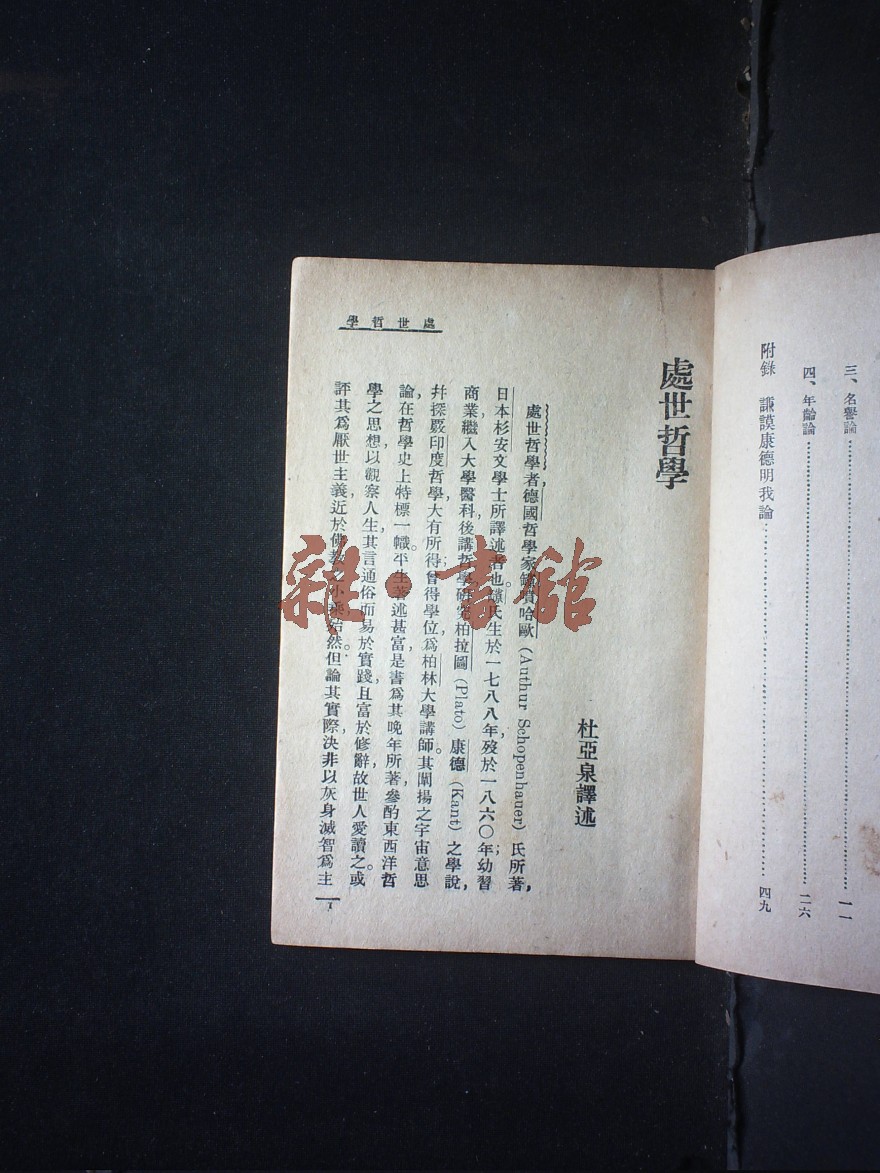 三、名譽論……一一
四、年齡論……二六
附錄 謙謨康德明我論……四九
處世哲學
杜亞泉譯述
處世哲學者德國哲學家 哈歐(Authur Schopenhauer)氏所著,
日本杉安文學士所譯述者也。 氏生於一七八八年,歿於一八六〇年;幼習
商業,繼入大學醫科,後講哲學,研究柏拉圖(Plato)康德(Kant)之學說,
幷探覈印度哲學,大有所得;曾得學位,爲柏林大學講師。其闡揚之宇宙意思
論,在哲學史上特標一幟。平生著述甚富,是書爲其晚年所著,參酌東西洋哲
學之思想,以觀察人生,其言通俗而易於實踐,且富於修辭,故世人愛讀之。或
評其爲厭世主義,近於佛教之小乘 然。但論其實際,決非以灰身滅智爲主
處世哲學
1
雜·書館